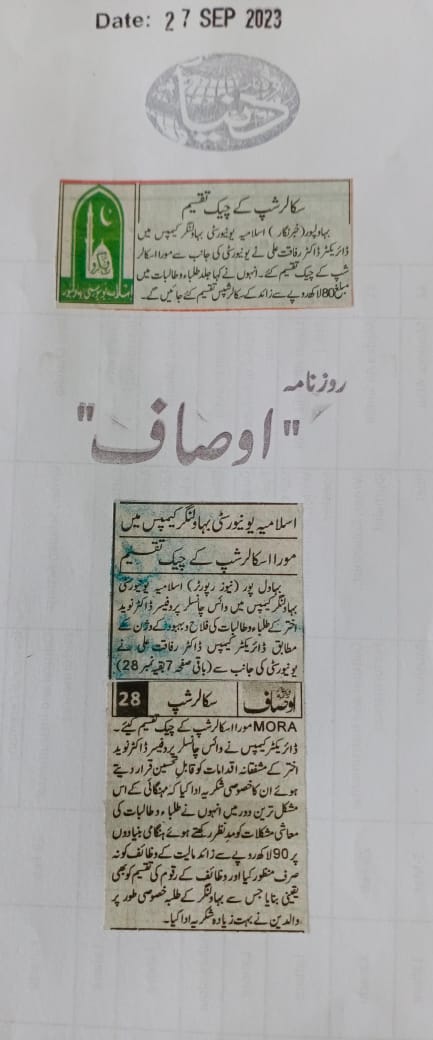 Date: 27 SEP 2023
دنیا
سکالرشپ کے چیک تقسیم
بہاولپور (خبرنگار) اسلامیہ یونیورسٹی بہاولنگر کیمپس میں
ڈائریکٹر ڈاکٹر رفاقت علی نے یونیورسٹی کی جانب سے مورا اسکالر
شپ کے چیک تقسیم کئے۔ انہوں نے کہا جلد طلباء و طالبات میں
مبلغ 80 لاکھ روپے سے زائد کے سکالرشپس تقسیم کئے جائیں گے۔
روزنامہ
"اوصاف"
اسلامیہ یونیورسٹی بہاولنگر کیمپس میں
مورا اسکالرشپ کے چیک تقسیم
بہاول پور (نیوز رپورٹر) اسلامیہ یونیورسٹی
بہاولنگر کیمپس میں وائس چانسلر پروفیسر ڈاکٹر نوید
اختر کے طلباء و طالبات کی فلاح و بہبود کے وژن کے
مطابق ڈائریکٹر کیمپس ڈاکٹر رفاقت علی نے
یونیورسٹی کی جانب سے (باقی صفحہ 7 بقیہ نمبر 28)
اوصاف سکالرشپ 28
MORA مورا اسکالرشپ کے چیک تقسیم کیئے۔
ڈائریکٹر کیمپس نے وائس چانسلر پروفیسر ڈاکٹر نوید
اختر کے مشفقانہ اقدامات کو قابل تحسین قرار دیتے
ہوئے ان کا خصوصی شکریہ ادا کیا کہ مہنگائی کے اس
مشکل ترین دور میں انہوں نے طلباء و طالبات کی
معاشی مشکلات کو مدنظر رکھتے ہوئے ہنگامی بنیادوں
پر 90 لاکھ روپے سے زائد مالیت کے وظائف کو نہ
صرف منظور کیا اور وظائف کے رقوم کی تقسیم کو بھی
یقینی بنایا جس سے بہاولنگر کے طلبہ خصوصی طور پر
والدین نے بہت زیادہ شکریہ ادا کیا۔